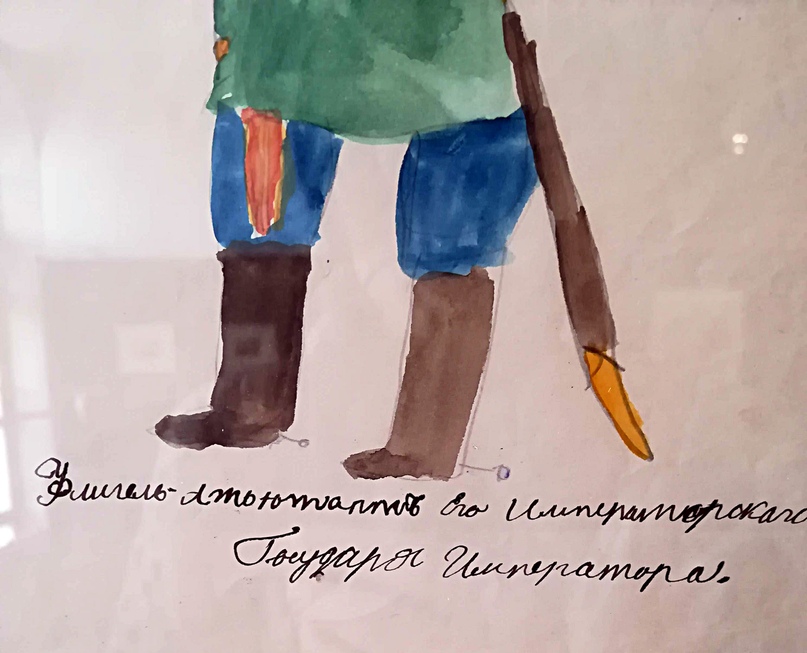 Флигель-Атьютантъ Его Императорскаго
Государя Императора.